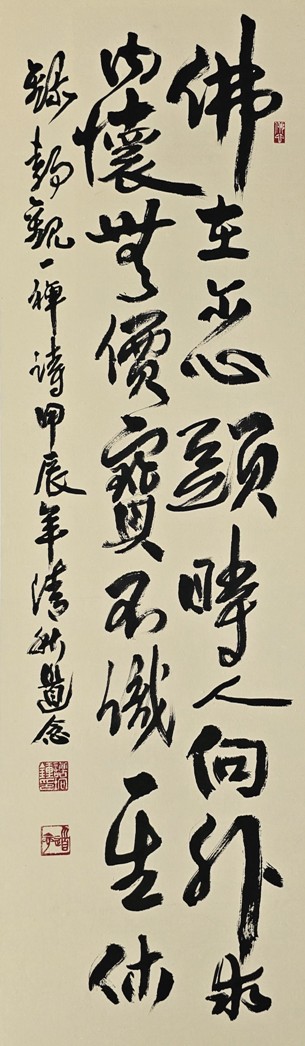 佛在尔心頭時人向外求
内懷無價寶不識一生休
錄静觀一禪詩甲辰年清秋道念